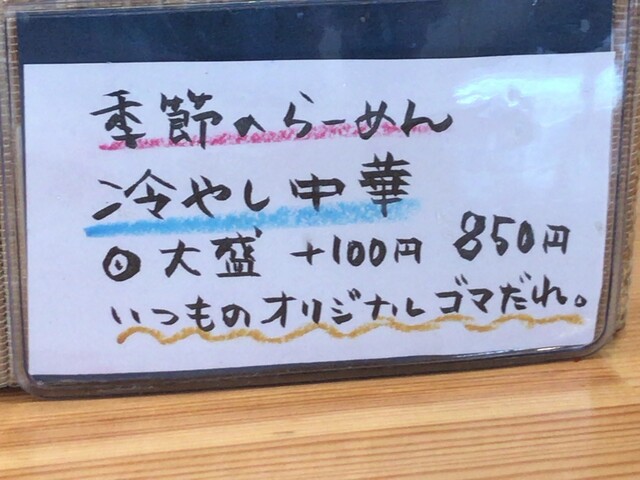 季節のらーめん
冷やし中華
◎大盛 +100円 850円
いつものオリジナルゴマだれ。